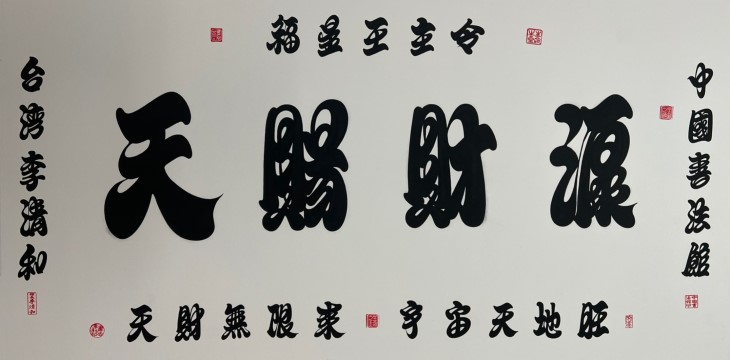 福星王主令
中國書法館
天賜財源
台湾李清和
天財無限來 宇宙天地旺